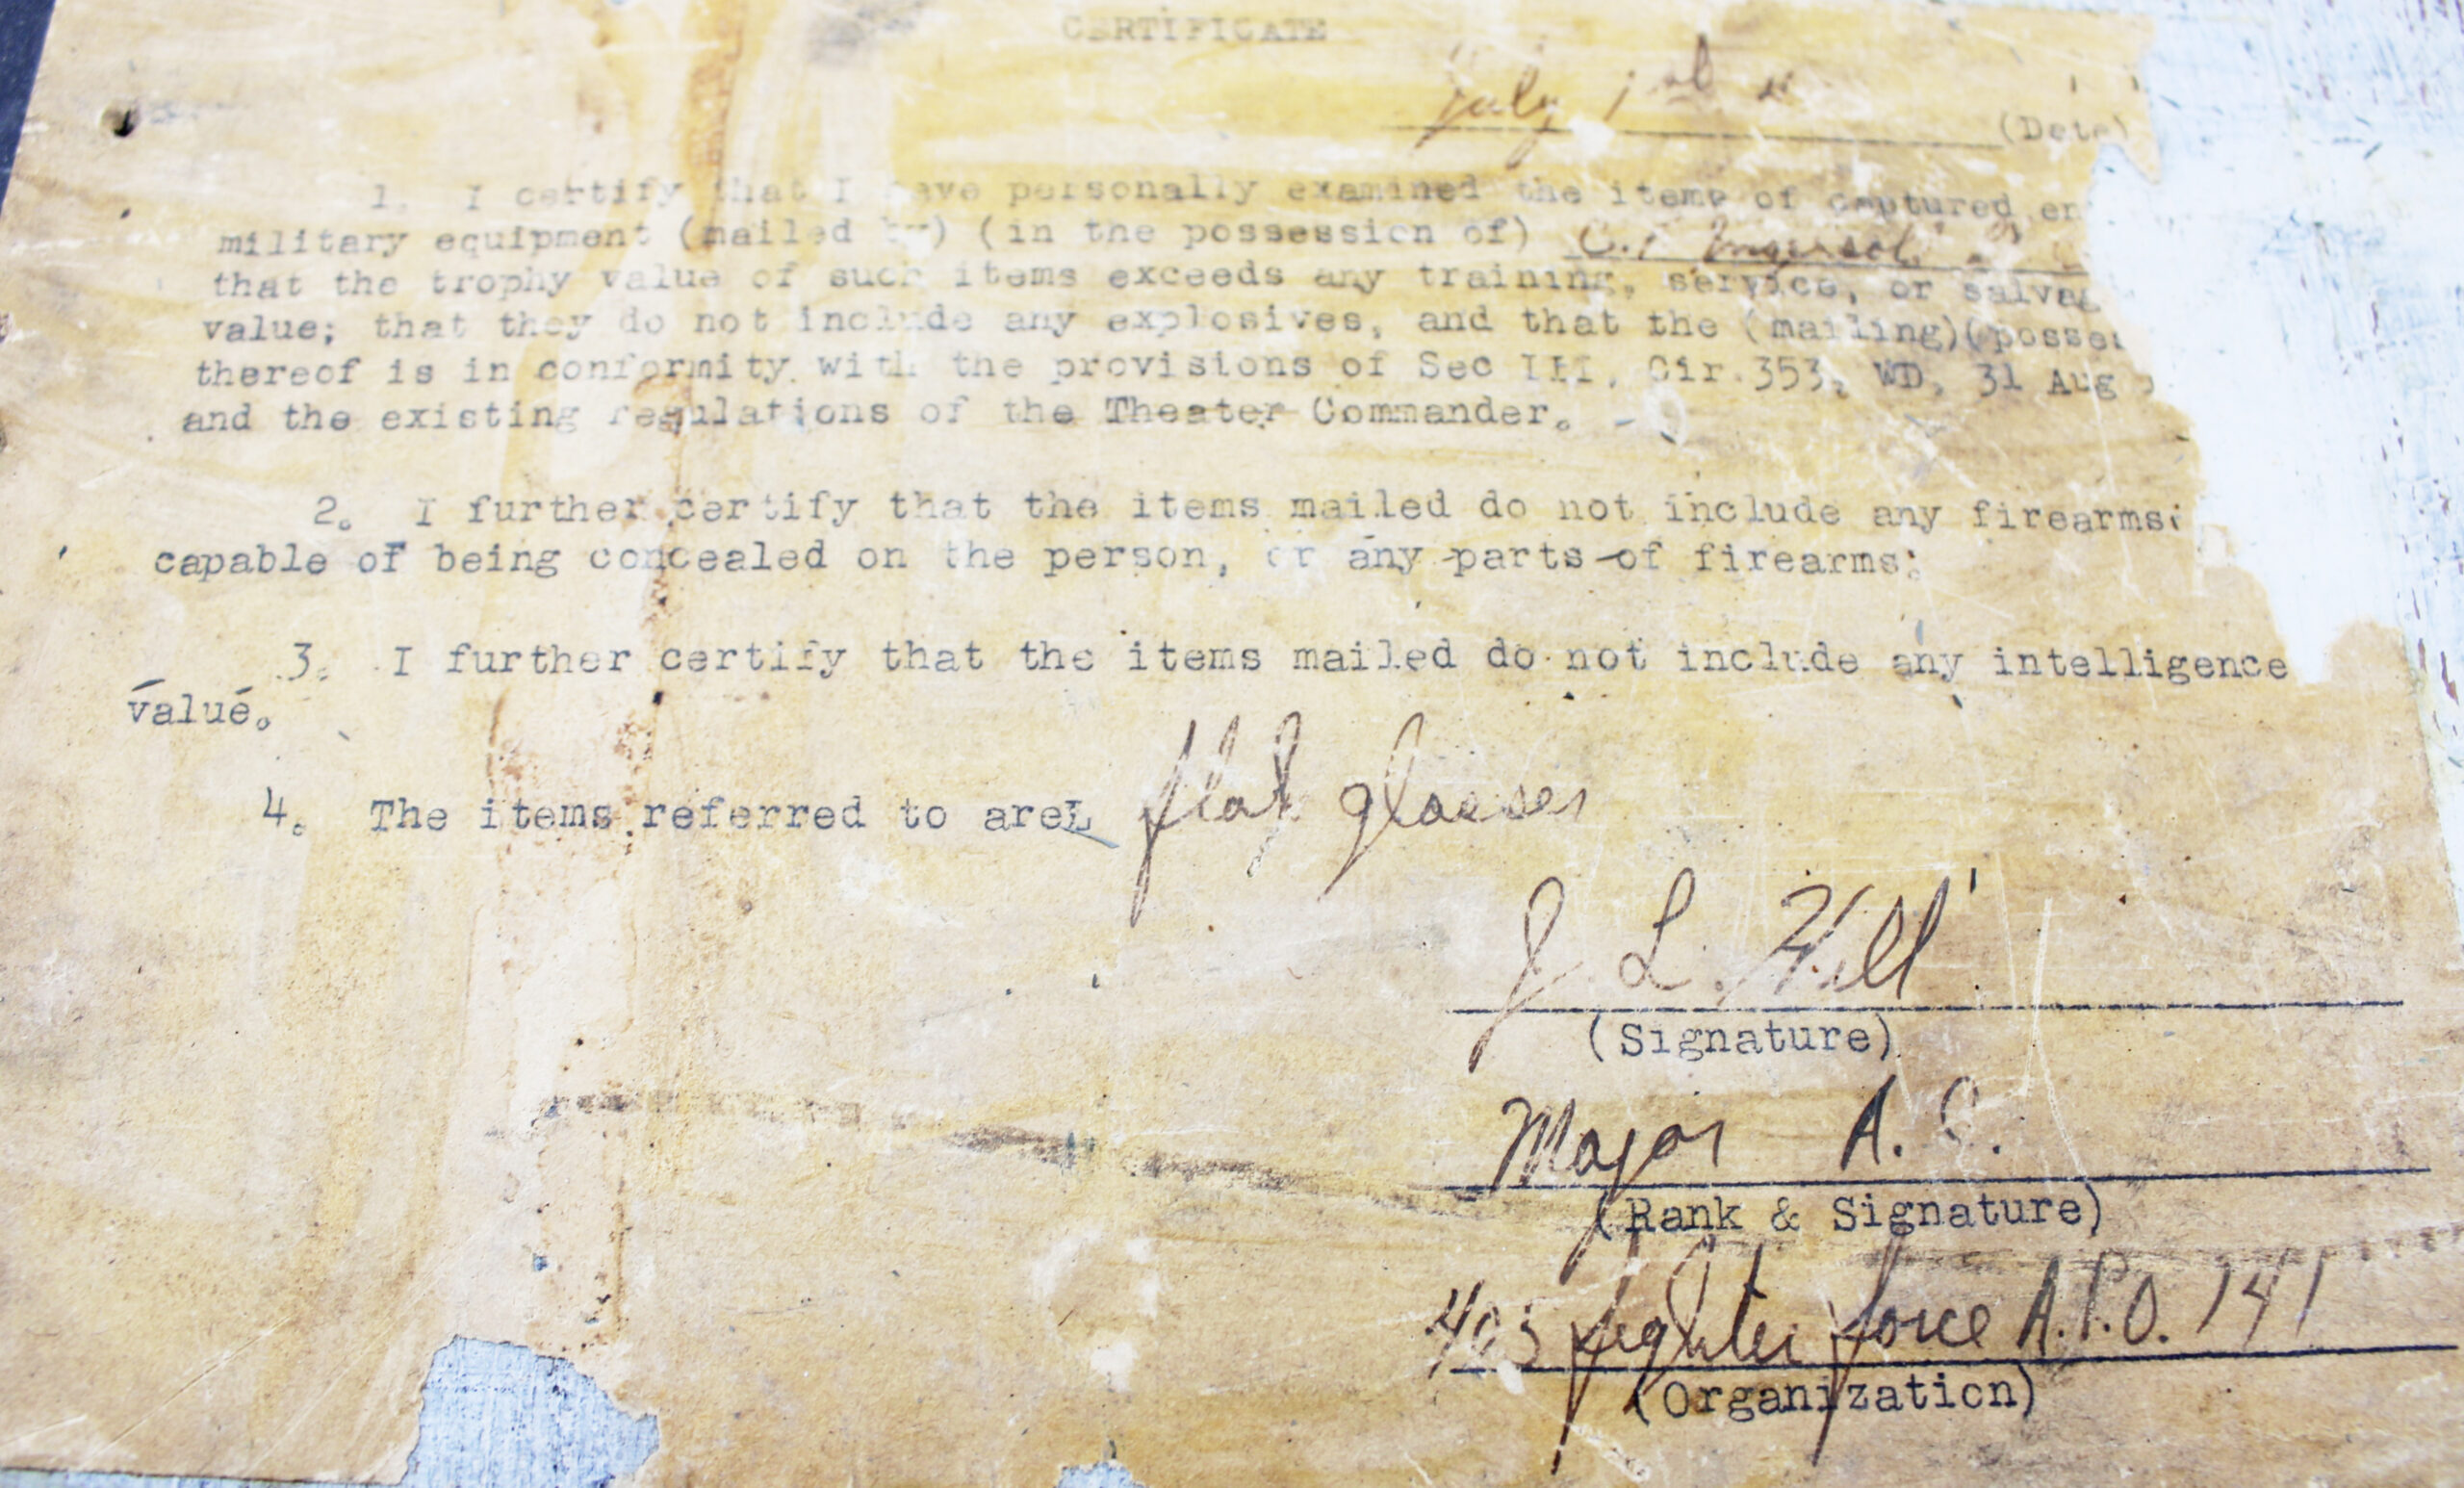 CERTIFICATE
July 1st
(Date)
1. I certify that I have personally examined the items of captured en
military equipment (mailed by) (in the possession of)
that the trophy value of such items exceeds any training, service, or salvag
value; that they do not include any explosives, and that the (mailing)(posses
thereof is in conformity with the provisions of Sec III, Cir.353, WD, 31 Aug
and the existing regulations of the Theater Commander.
2. I further certify that the items mailed do not include any firearms
capable of being concealed on the person, or any parts of firearms;
3. I further certify that the items mailed do not include any intelligence
value.
4. The items referred to are flak glasses
J. L. Hill
(Signature)
Major A. C.
(Rank & Signature)
405 fighter force A.P.O. 141
(Organization)